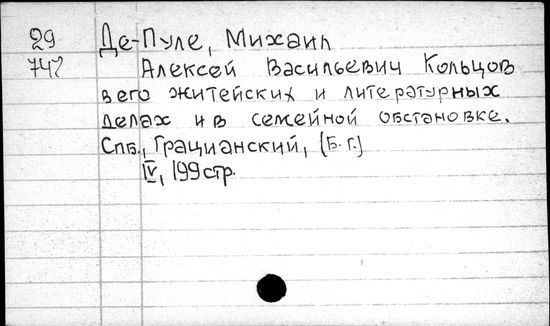 29 Де-Пуле, Михаил
747 Алексей Васильевич Кольцов
в его житейских и литературных
делах и в семейной обстановке.
Спб., Грацианский, (Б.г.)
IV, 199 стр.